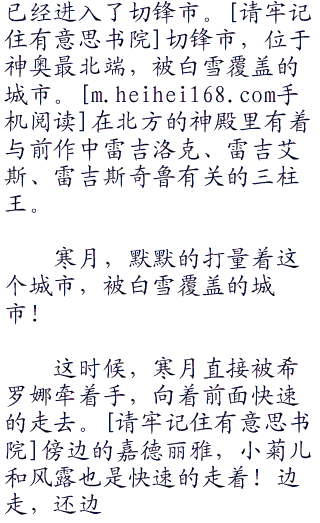 已经进入了切锋市。[请牢记
住有意思书院]切锋市，位于
神奥最北端，被白雪覆盖的
城市。[m.heihei168.com手
机阅读]在北方的神殿里有着
与前作中雷吉洛克、雷吉艾
斯、雷吉斯奇鲁有关的三柱
王。
寒月，默默的打量着这
个城市，被白雪覆盖的城
市！
这时候，寒月直接被希
罗娜牵着手，向着前面快速
的走去。[请牢记住有意思书
院]傍边的嘉德丽雅，小菊儿
和风露也是快速的走着！边
走，还边